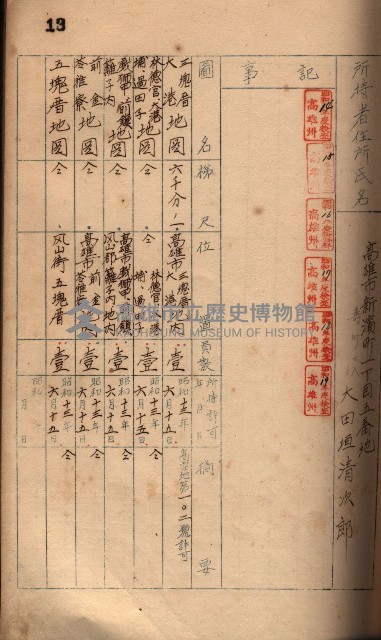 13
所持者住所氏名
高雄市新濱町一丁目五番地
大田垣清次郎
記事
昭和14年度檢查 高雄州
15 高雄州
16 高雄州
昭和17年度檢查 高雄州
18 高雄州
19 高雄州
圖名
梯尺
位
員數
所持許可年月日
摘要
三塊厝 大港 地圖
六千分ノ一
高雄市三塊厝 大港地內
壹
昭和十三年六月十五日
第一〇二號許可
林德官 大港埔 過田子 地圖
仝
壹
昭和十三年六月十五日
仝
戲獅甲 前鎮 籬子內 地圖
仝
高雄市戲獅甲 前鎮 鳳山郡籬子內地內
壹
昭和十三年六月十五日
仝
前金 苓雅寮 地圖
仝
高雄市前金 苓雅寮
壹
昭和十三年六月十五日
仝
五塊厝地圖
仝
鳳山街五塊厝
壹
昭和十三年六月十五日
仝
昭和 年 月 日
高雄市立歷史博物館
KAOHSIUNG MUSEUM OF HISTORY